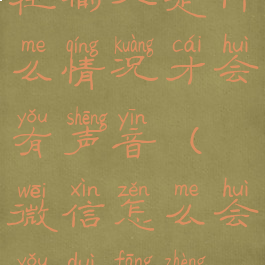 me qíng kuàng cái huì
么情况才会
yǒu shēng yīn
有声音（
wēi xìn zěn me huì
微信怎么会
yǒu duì fāng zhèng